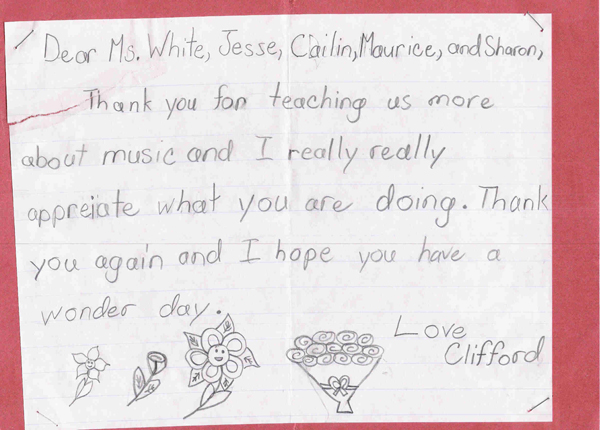 Dear Ms. White, Jesse, Cailin, Maurice, and Sharon,
Thank you for teaching us more
about music and I really really
appreiate what you are doing. Thank
you again and I hope you have a
wonder day.
Love
Clifford